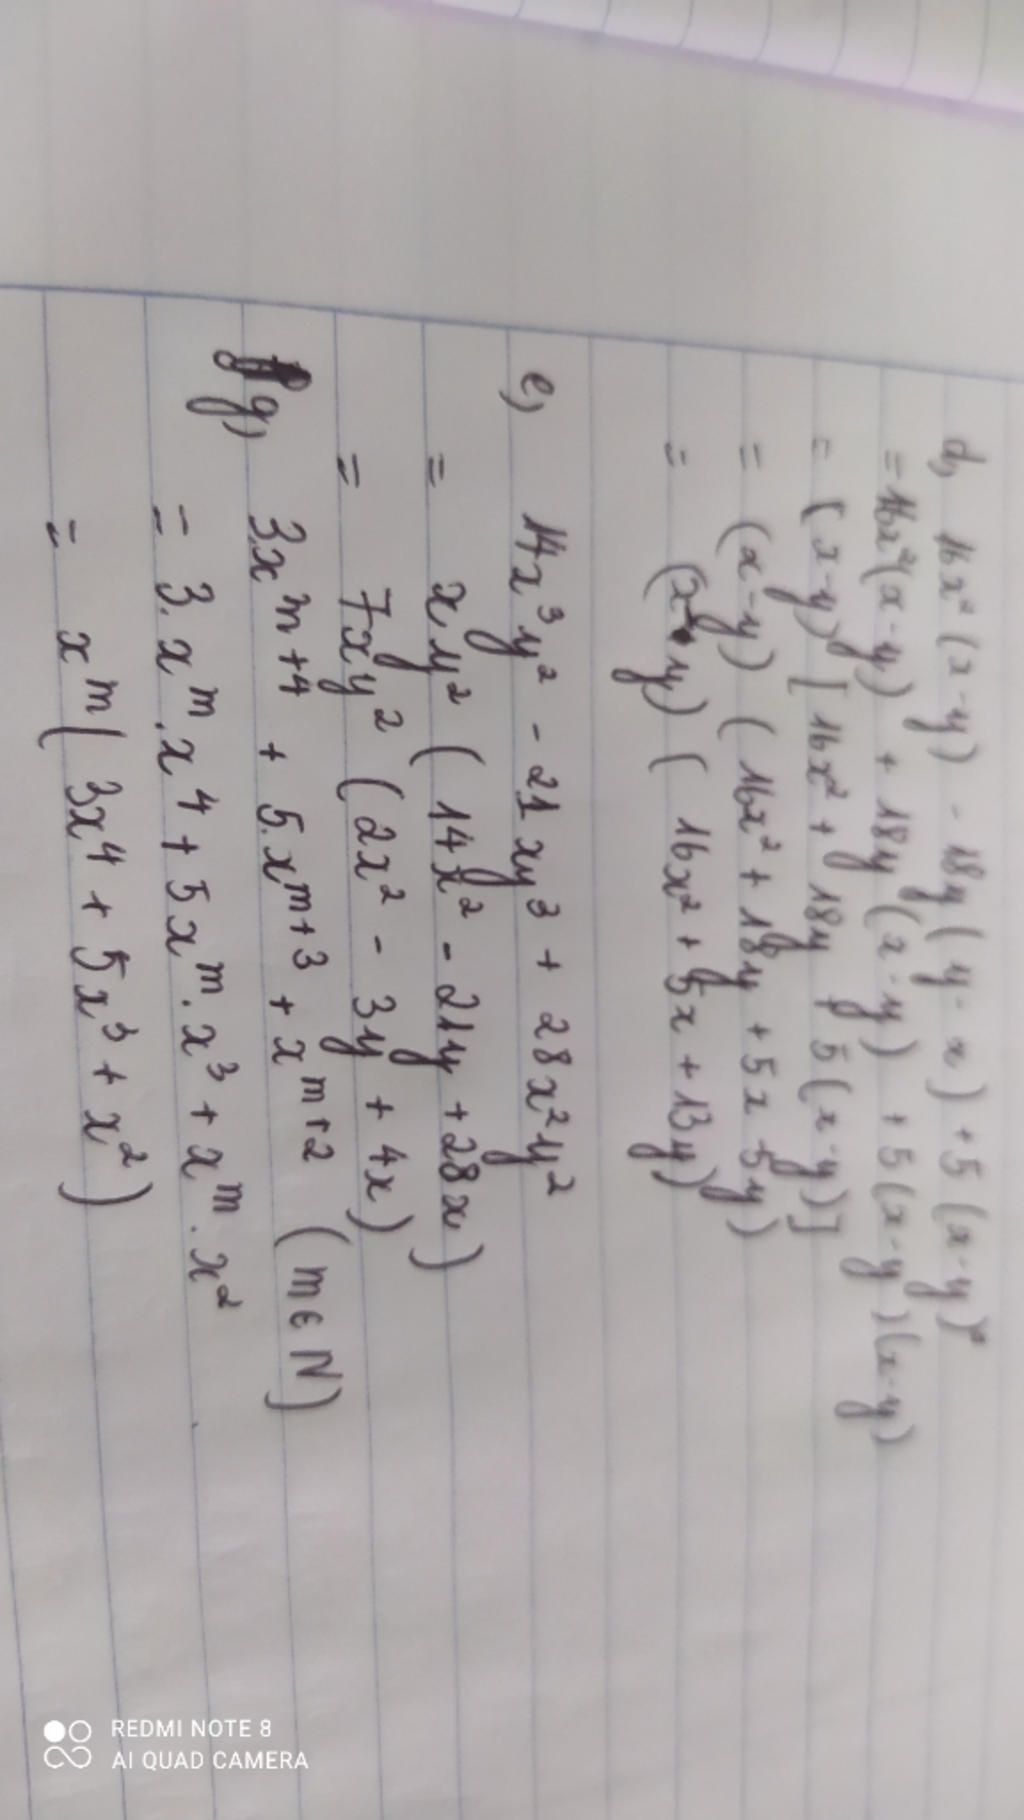 d, 16x² (x-y) - 18y (y-x) + 5 (x-y)²
= 16x²(x-y) + 18y (x-y) + 5(x-y)(x-y)
= (x-y) [16x² + 18y + 5(x-y)]
= (x-y) (16x² + 18y + 5x - 5y)
= (x-y) ( 16x² + 5x + 13y)
e, 14x³y² - 21xy³ + 28x²y²
= xy² ( 14x² - 21y + 28x )
= 7xy² (2x² - 3y + 4x)
g, 3x^m+4 + 5.x^m+3 + x^m+2 (m ∈ N)
= 3.x^m.x⁴ + 5x^m.x³ + x^m.x²
= x^m( 3x⁴ + 5x³ + x²)
REDMI NOTE 8
AI QUAD CAMERA